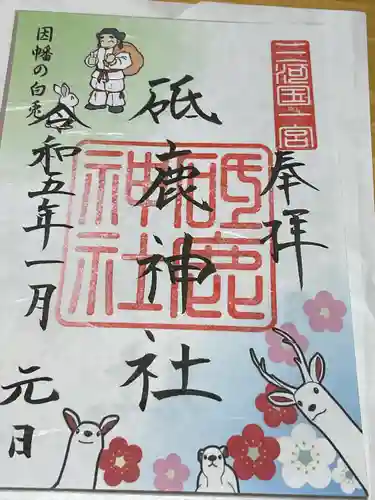 三河国一宮
奉拝
砥鹿神社
砥鹿
神社
因幡の白兎
令和五年一月元日